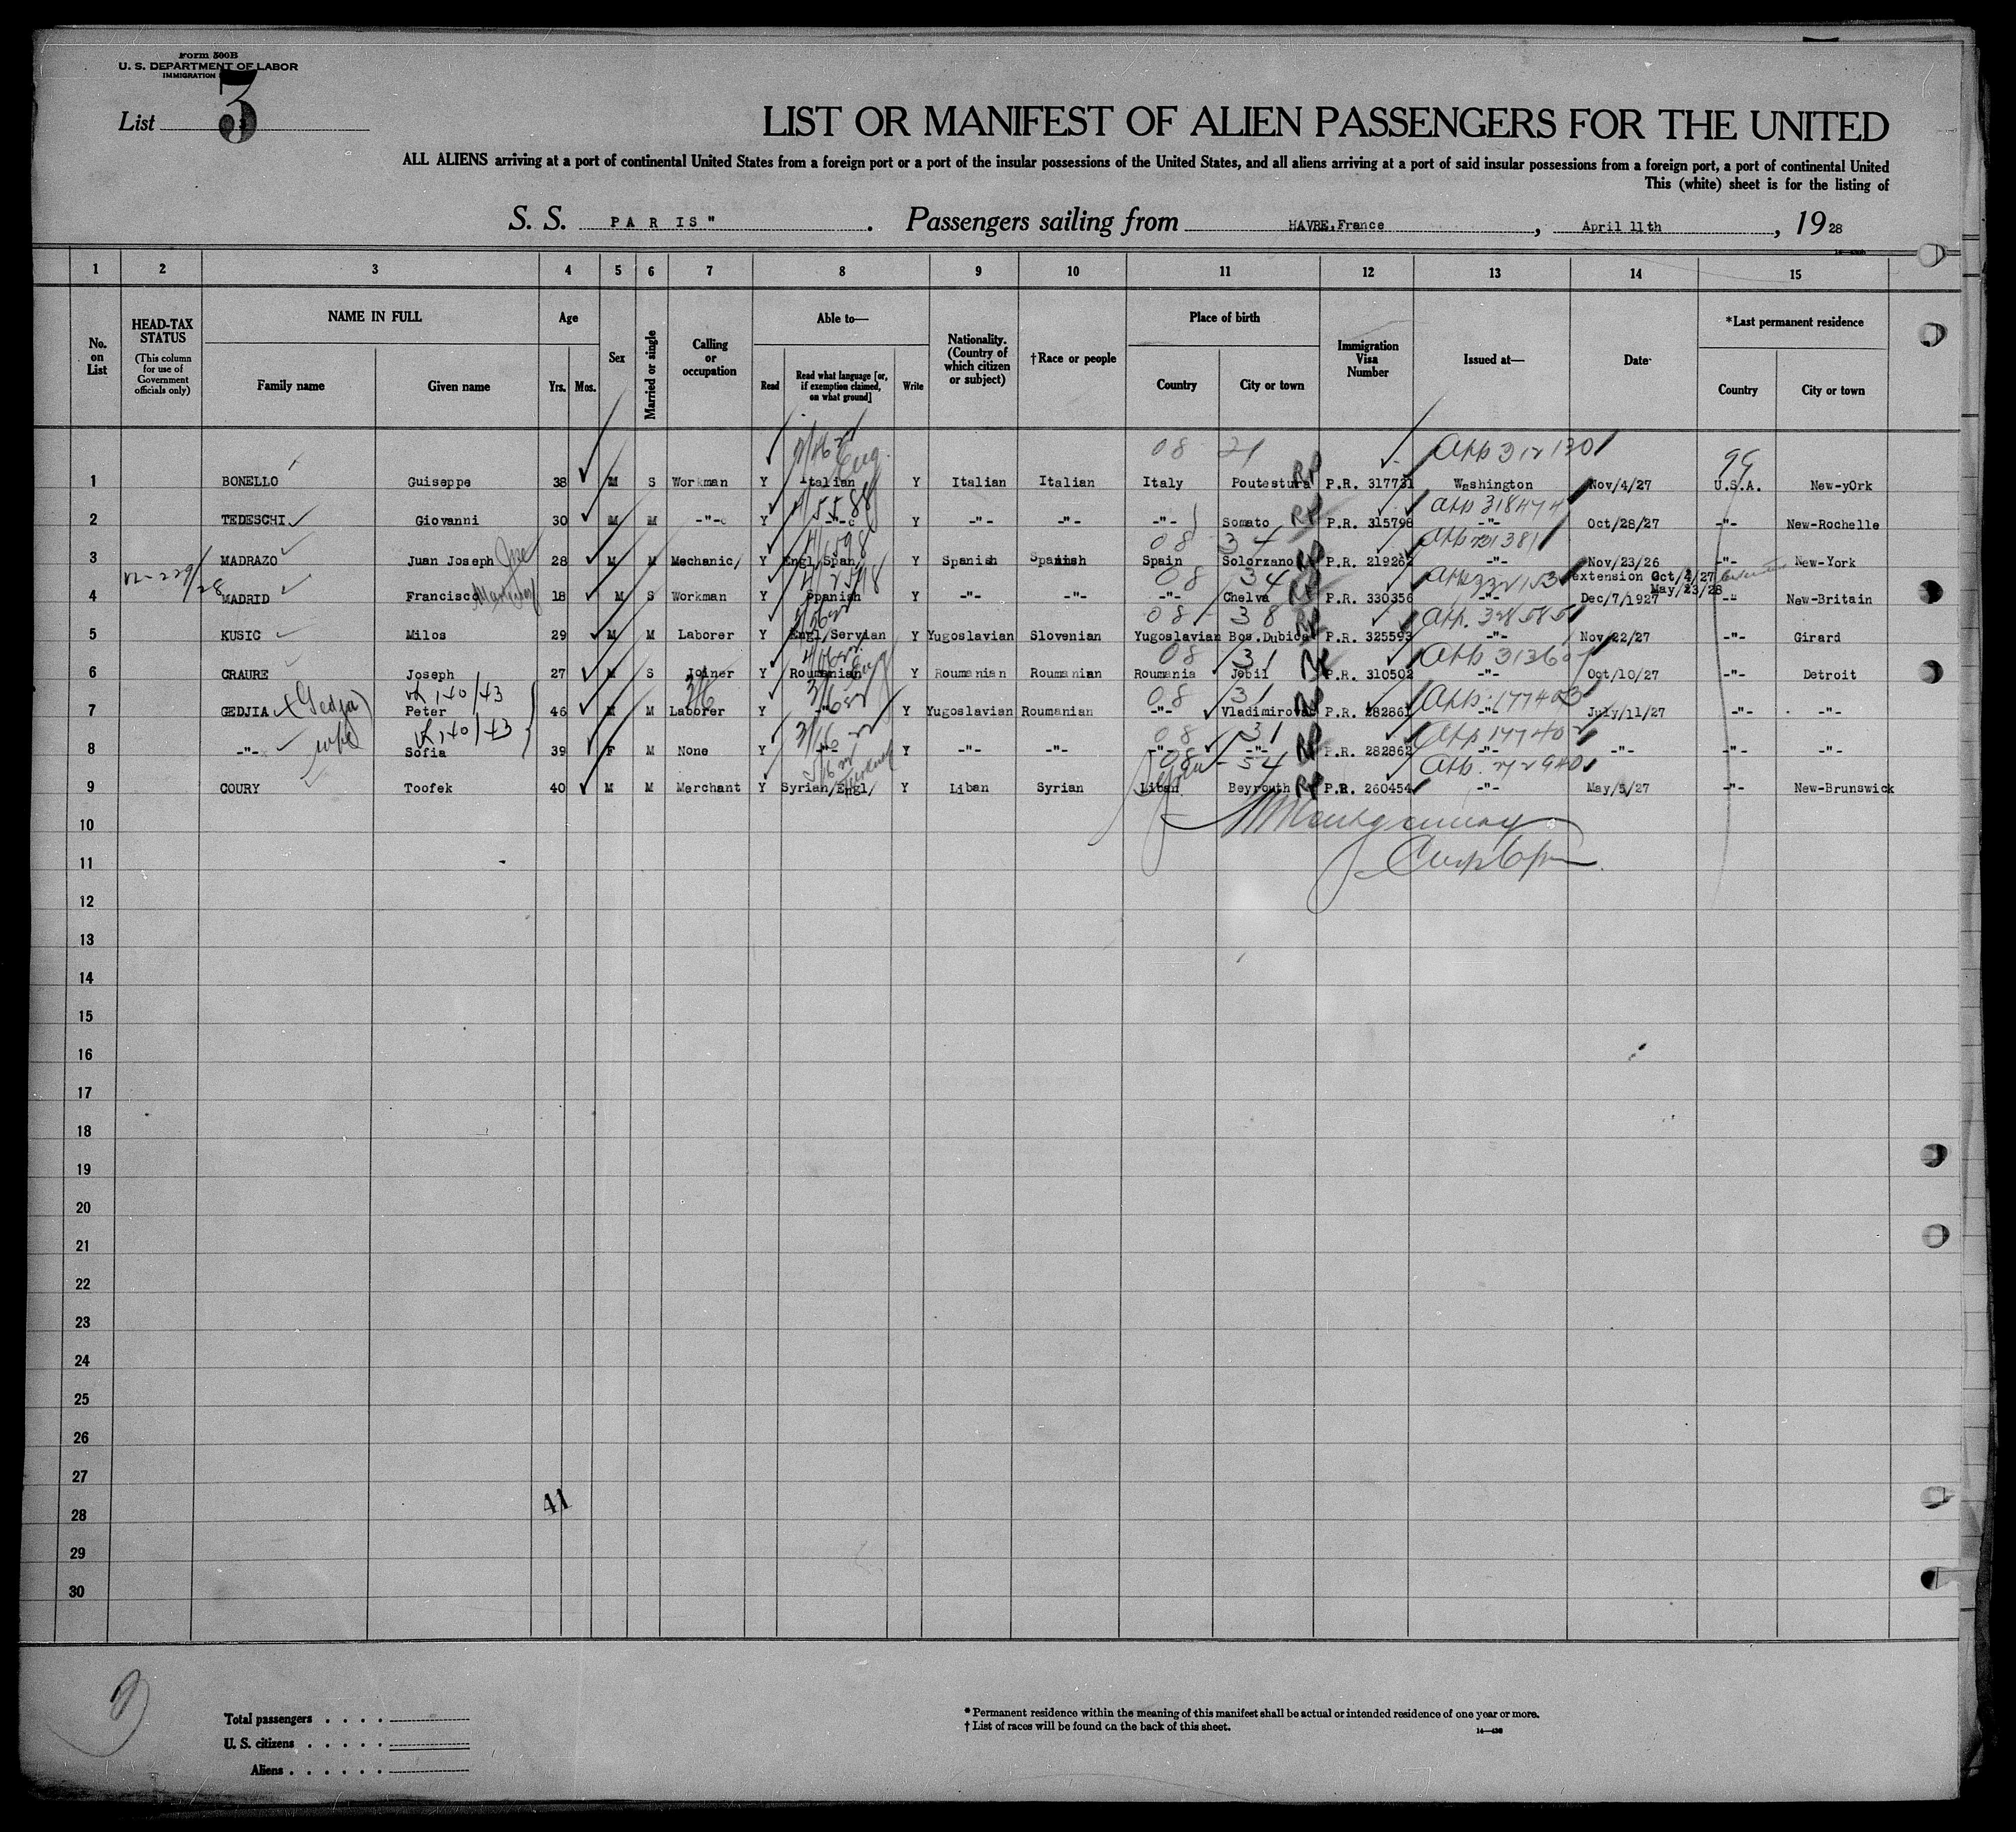 Form 500B
U. S. DEPARTMENT OF LABOR
IMMIGRATION
List 3
LIST OR MANIFEST OF ALIEN PASSENGERS FOR THE UNITED
ALL ALIENS arriving at a port of continental United States from a foreign port or a port of the insular possessions of the United States, and all aliens arriving at a port of said insular possessions from a foreign port, a port of continental United
This (white) sheet is for the listing of
S. S. PARIS" . Passengers sailing from HAVRE,France , April 11th , 1928
1 2 3 4 5 6 7 8 9 10 11 12 13 14 15
No. on List
HEAD-TAX STATUS (This column for use of Government officials only)
NAME IN FULL
Family name Given name
Age
Yrs. Mos.
Sex
Married or single
Calling or occupation
Able to—
Read
Read what language [or, if exemption claimed, on what ground]
Write
Nationality. (Country of which citizen or subject)
†Race or people
Place of birth
Country City or town
Immigration Visa Number
Issued at—
Date
*Last permanent residence
Country City or town
08 21 App 312130 99
1 BONELLO Guiseppe 38 M S Workman Y Italian Y Italian Italian Italy Poutestura RP P.R. 317731 Washington Nov/4/27 U.S.A. New-yOrk
2 TEDESCHI Giovanni 30 M M -"- Y -"- Y -"- -"- -"- Somato RP P.R. 315798 -"- Oct/28/27 -"- New-Rochelle
08 34
3 MADRAZO Juan Joseph Jose 28 M M Mechanic/ Y Engl/Span/ Y Spanish Spanish Spain Solorzano P.R. 219262 -"- Nov/23/26 -"- New-York
extension Oct/4/27
May/23/28
08 34
4 MADRID Francisco 18 M S Workman Y Spanish Y -"- -"- -"- Chelva P.R. 330356 -"- Dec/7/1927 -"- New-Britain
08 38
5 KUSIC Milos 29 M M Laborer Y Engl/Servian Y Yugoslavian Slovenian Yugoslavian Bos.Dubica P.R. 325593 -"- Nov/22/27 -"- Girard
08 31
6 CRAURE Joseph 27 M S Joiner Y Roumanian Y Roumanian Roumanian Roumania Jebil P.R. 310502 -"- Oct/10/27 -"- Detroit
08 31 App. 177403
7 GEDJIA (Gedja) Peter 46 M M Laborer Y -"- Y Yugoslavian Roumanian -"- Vladimirovac P.R. 282861 -"- July/11/27 -"- -"-
08 31 App 177402
8 -"- wife Sofia 39 F M None Y -"- Y -"- -"- -"- -"- P.R. 282862 -"- -"- -"- -"-
08 54
9 COURY Toofek 40 M M Merchant Y Syrian/Engl/ Y Liban Syrian Liban Beyrouth P.R. 260454 -"- May/5/27 -"- New-Brunswick
10
11
12
13
14
15
16
17
18
19
20
21
22
23
24
25
26
27
41
28
29
30
Total passengers . . . .
U. S. citizens . . . . .
Aliens . . . . . .
* Permanent residence within the meaning of this manifest shall be actual or intended residence of one year or more.
† List of races will be found on the back of this sheet.